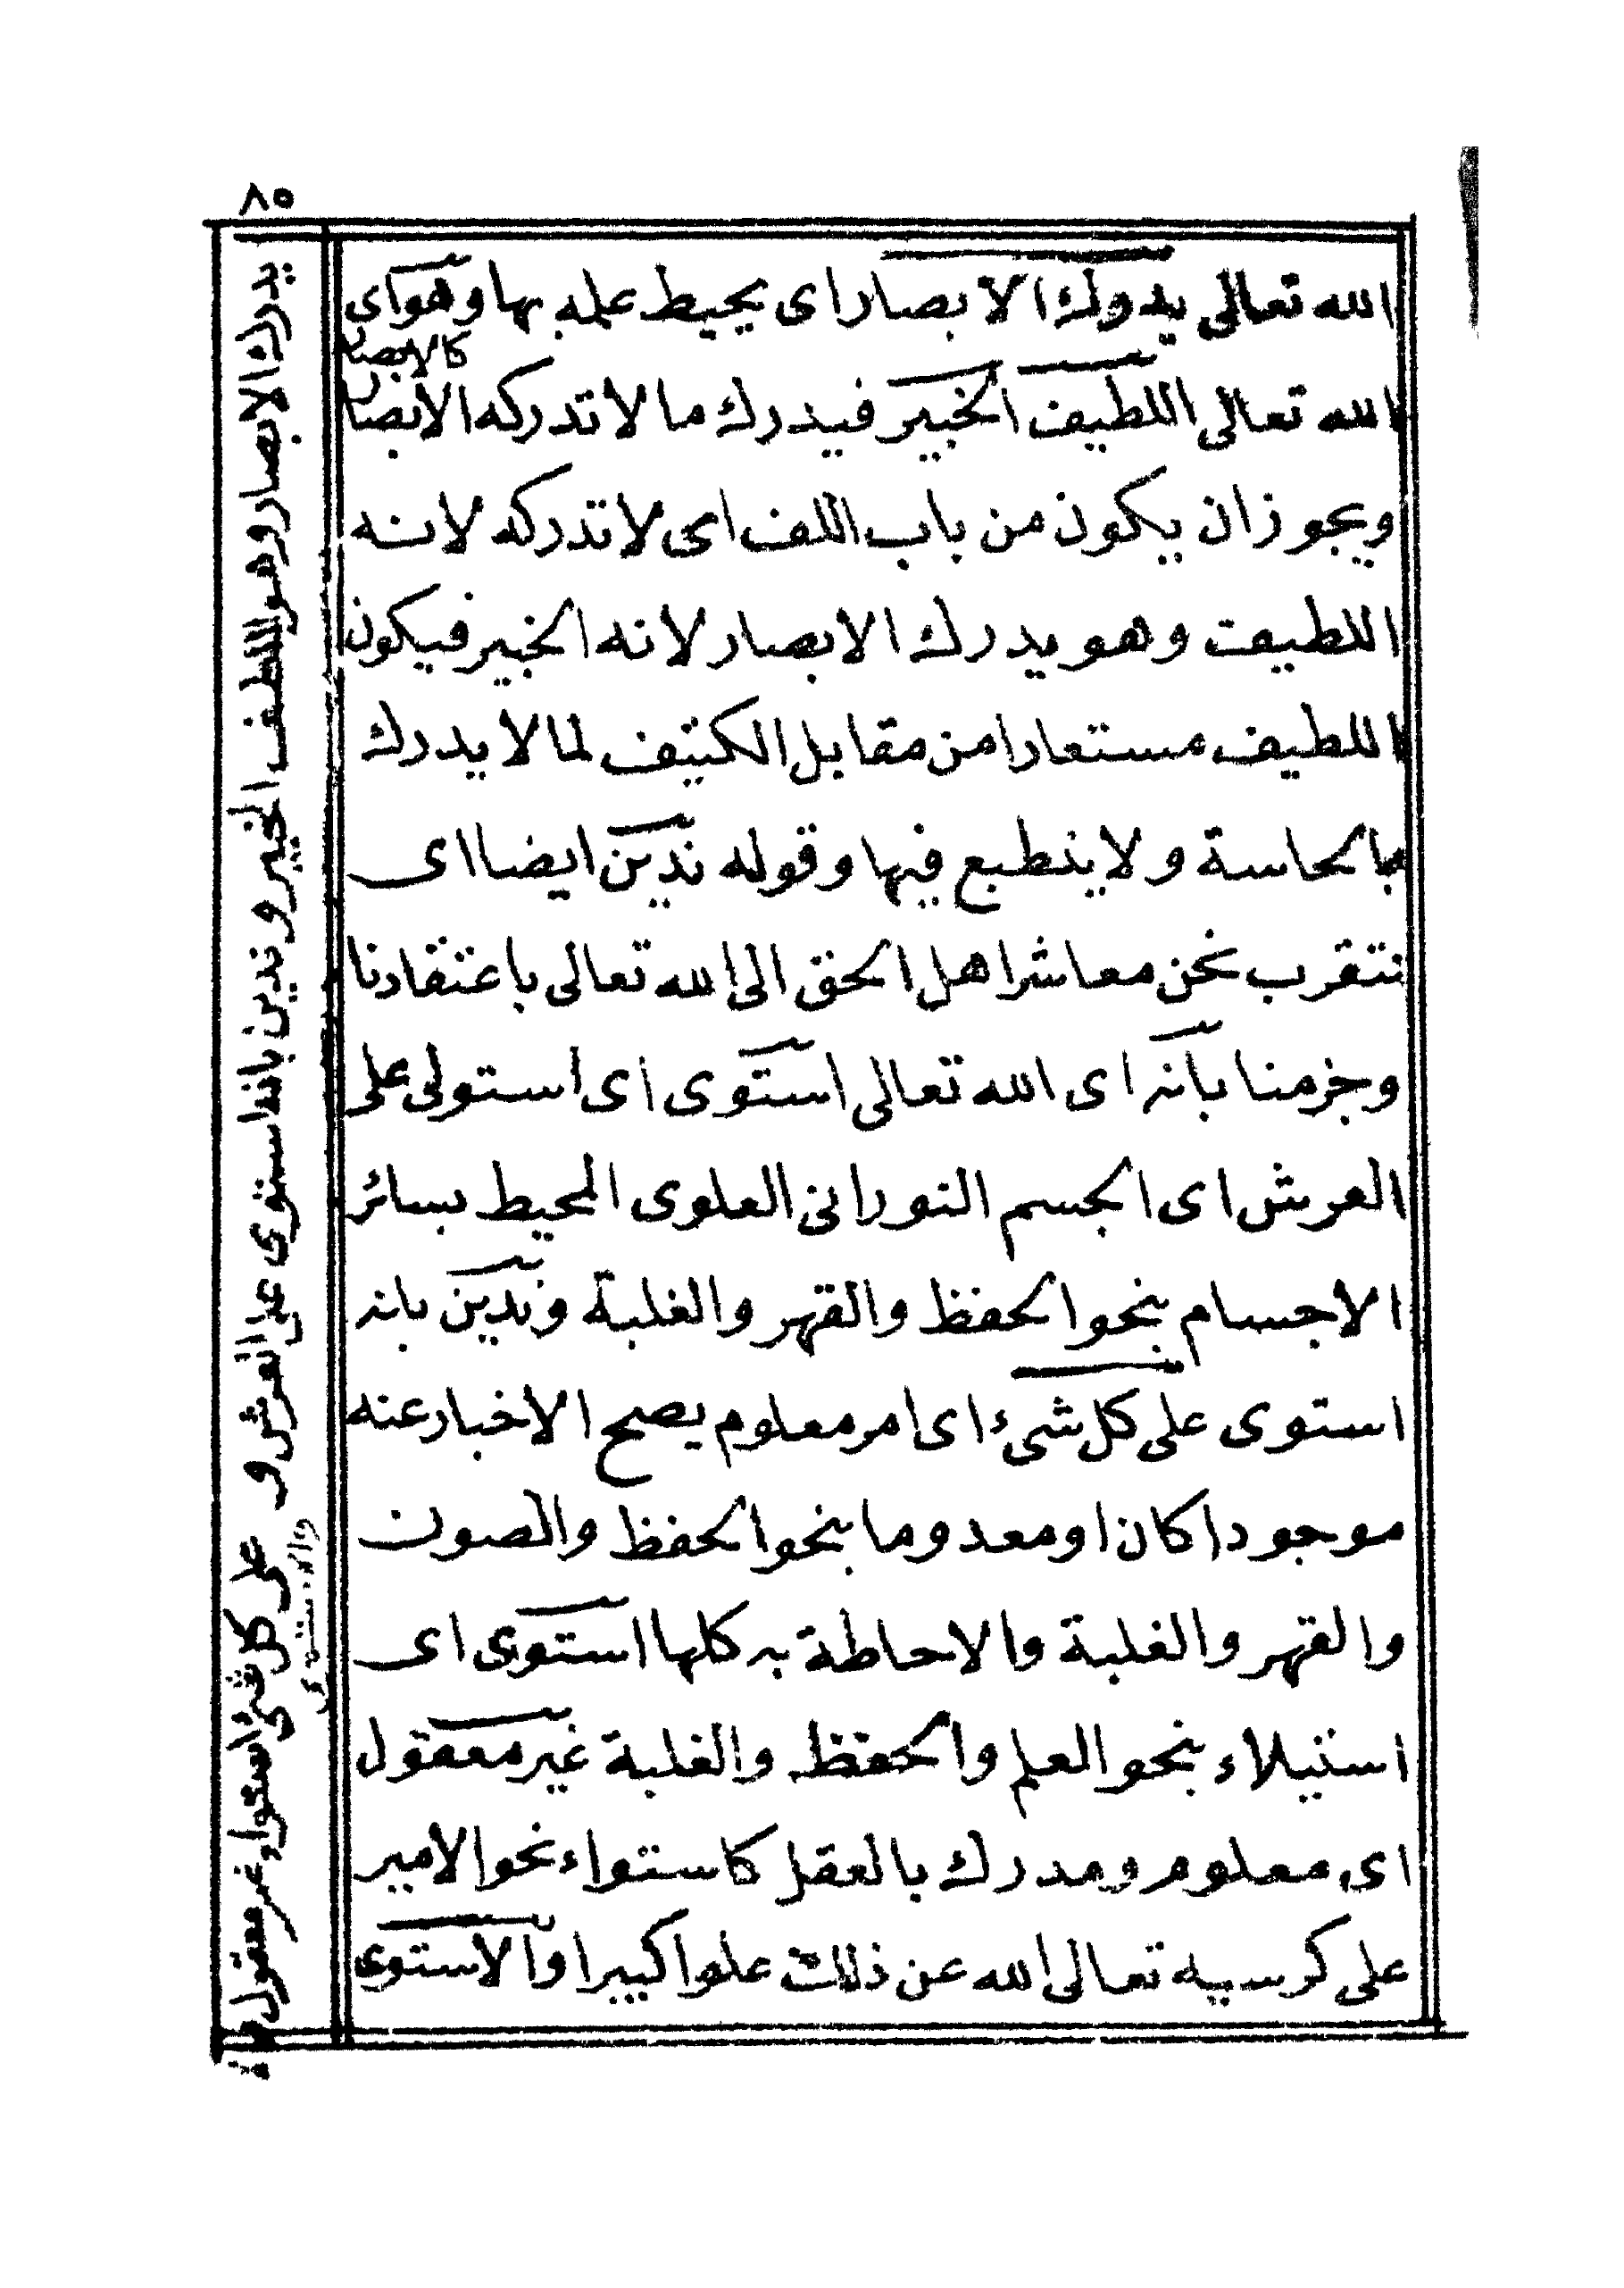 ٨٥
الله تعالى يدرك الابصار اى يحيط علمه بها وهو اى
كالابصار
الله تعالى اللطيف الخبير فيدرك ما لا تدركه الابصار
ويجوز ان يكون من باب اللف اى لا تدركه لانه
اللطيف وهو يدرك الابصار لانه الخبير فيكون
اللطيف مستعارا من مقابل الكثيف لما لا يدرك
بالحاسة ولا ينطبع فيها وقوله ندين ايضا اى
نتقرب نحن معاشر اهل الحق الى الله تعالى باعتقادنا
وجزمنا بانه اى الله تعالى استوى اى استولى على
العرش اى الجسم النورانى العلوى المحيط بسائر
الاجسام بنحو الحفظ والقهر والغلبة وندين بانه
استوى على كل شىء اى امر معلوم يصح الاخبار عنه
موجودا كان او معدوما بنحو الحفظ والصون
والقهر والغلبة والاحاطة به كلها استوى اى
استيلاء بنحو العلم والحفظ والغلبة غير معقول
اى معلوم ومدرك بالعقل كاستواء نحو الامير
على كرسيه تعالى الله عن ذلك علوا كبيرا والاستوى
يدرك الابصار وهو اللطيف الخبير وندين بانه استوى على العرش و على كل شىء استواء غير معقول
والاستوى